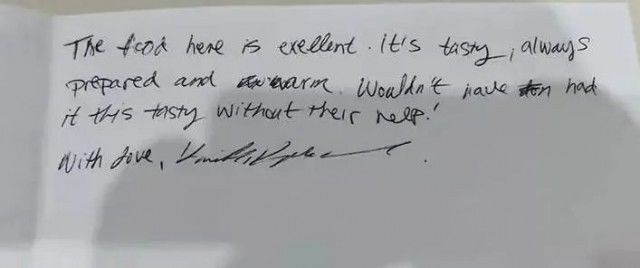 The food here is exellent. It's tasty, always
prepared and warm. Wouldn't have had
it this tasty without their help!
With love,